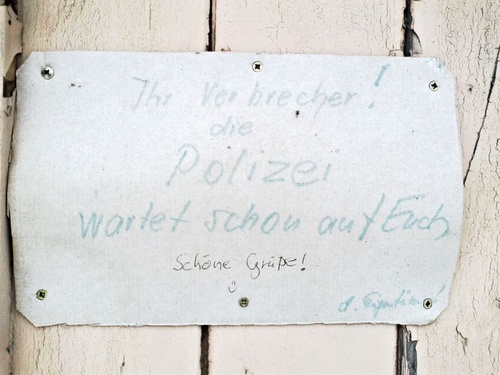 Ihr Verbrecher!
die
Polizei
wartet schon auf Euch
Schöne Grüße!